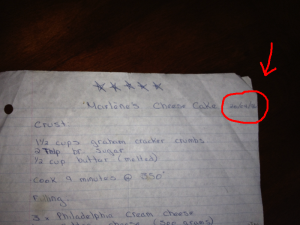 Marlene's Cheese Cake
Crust
1 1/2 cups graham cracker crumbs
2 Tbsp br. sugar
1/2 cup butter (melted)
Cook 9 minutes @ 350°
Filling
3 x Philadelphia cream cheese
cheese